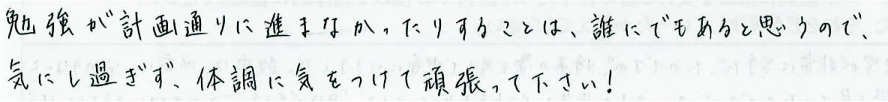 勉強が計画通りに進まなかったりすることは、誰にでもあると思うので、
気にし過ぎず、体調に気をつけて頑張って下さい!